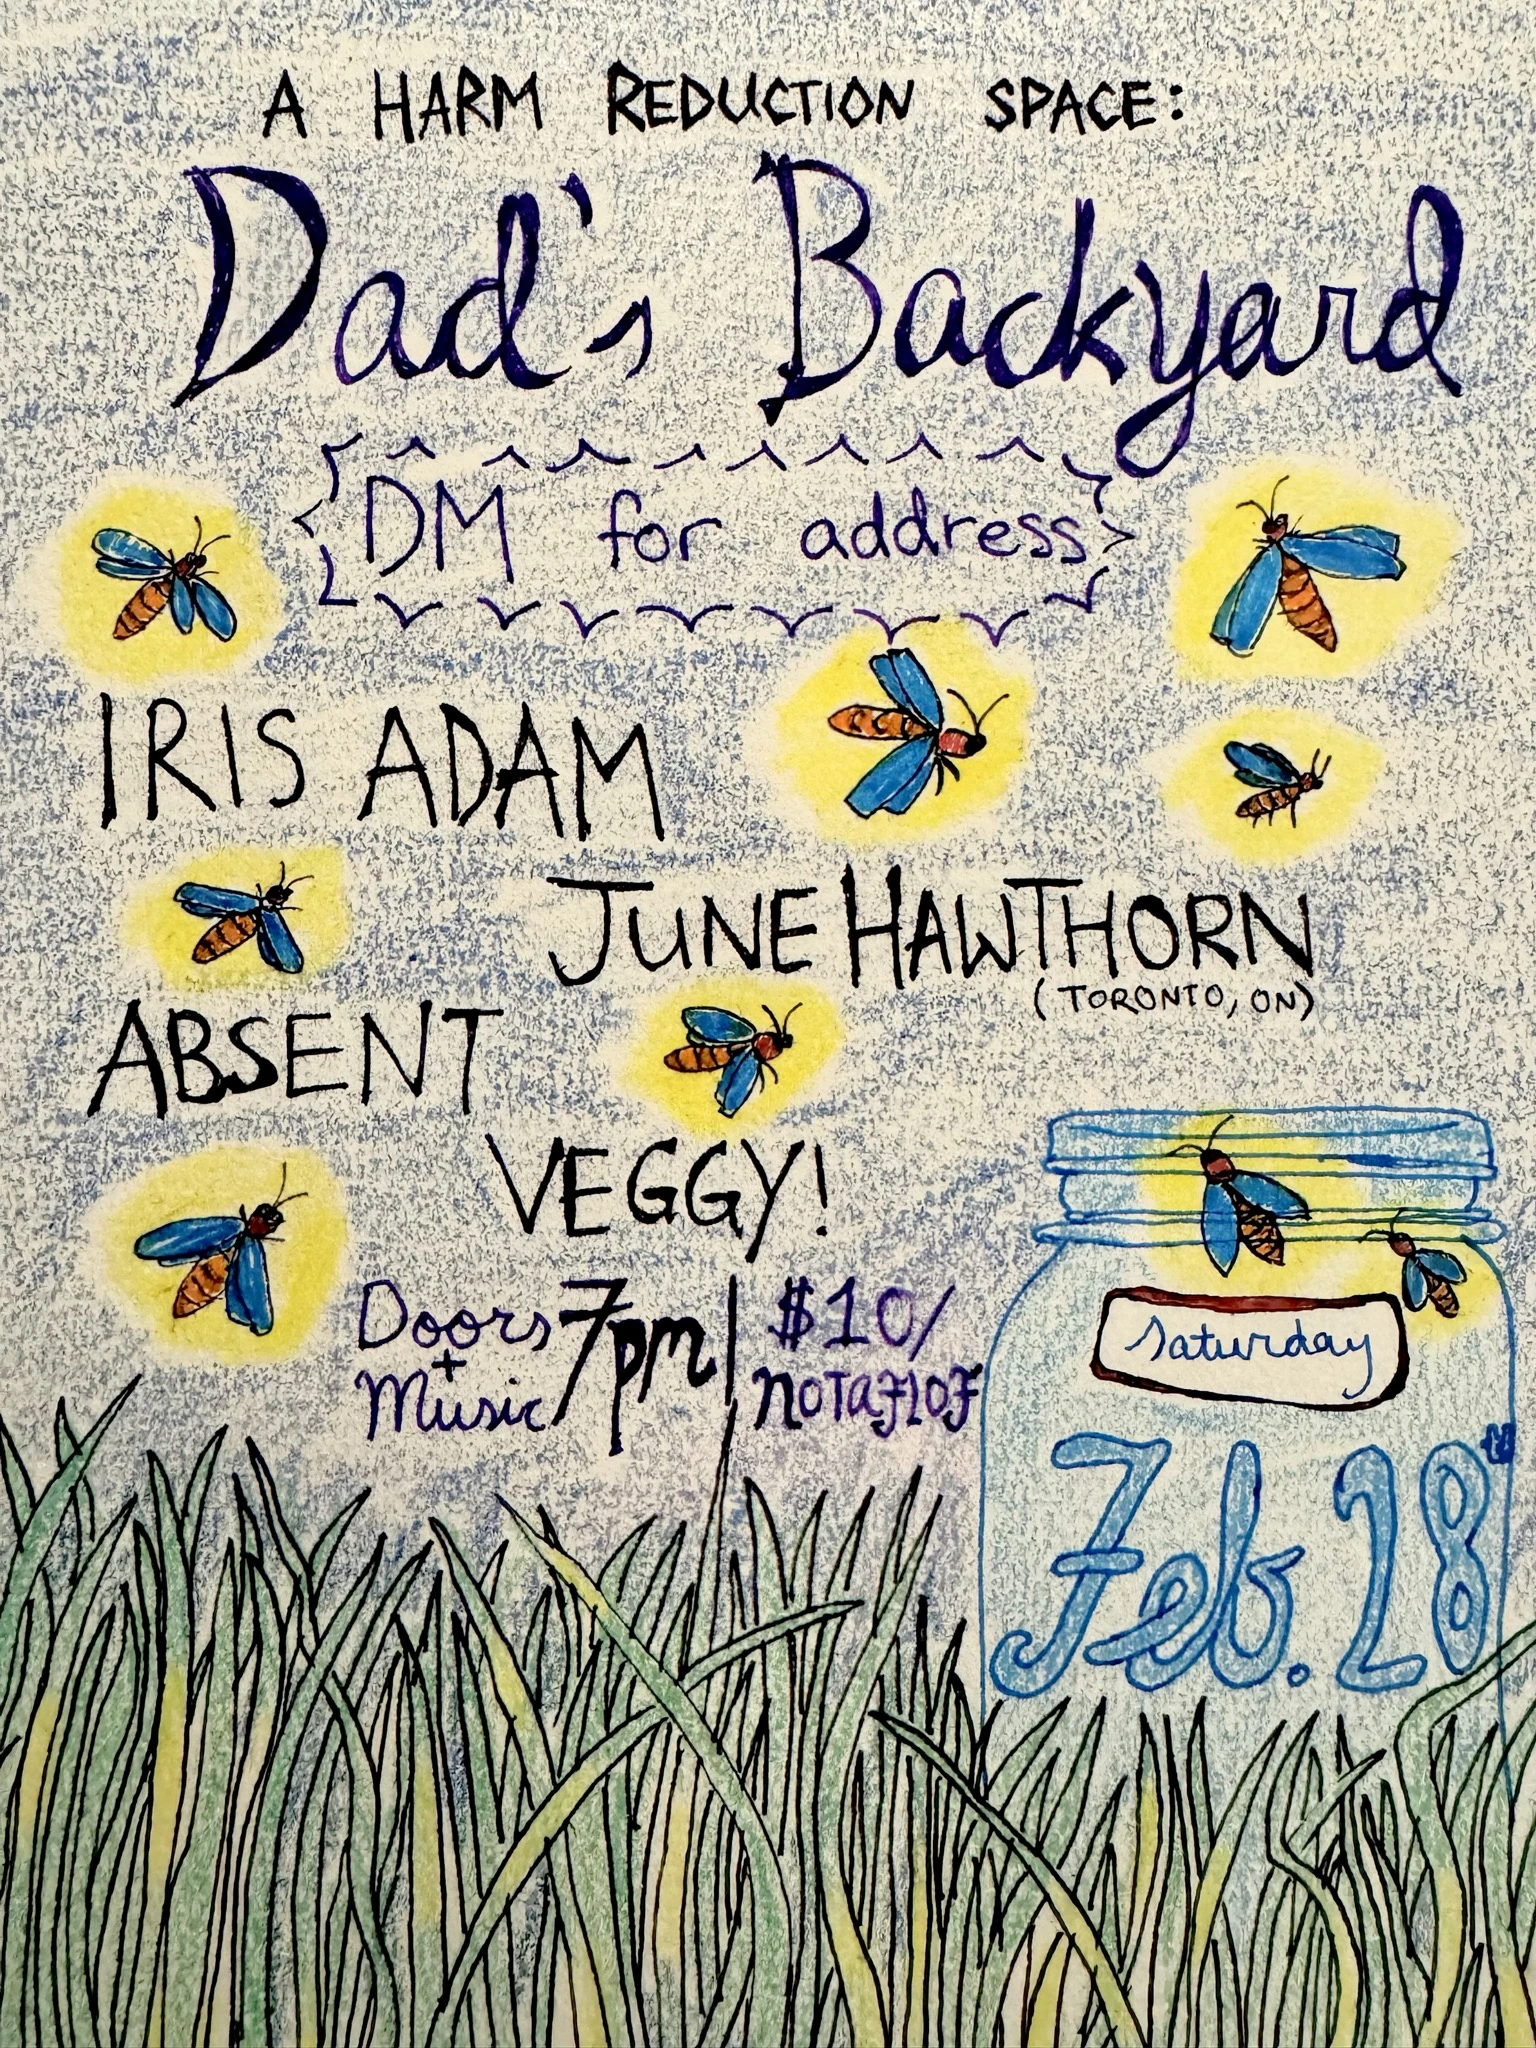 A HARM REDUCTION SPACE:
Dad's Backyard
DM for address
IRIS ADAM
JUNE HAWTHORN
(TORONTO, ON)
ABSENT
VEGGY!
Doors + Music 7pm | $10/ NOTAFLOF
Saturday
Feb. 28th